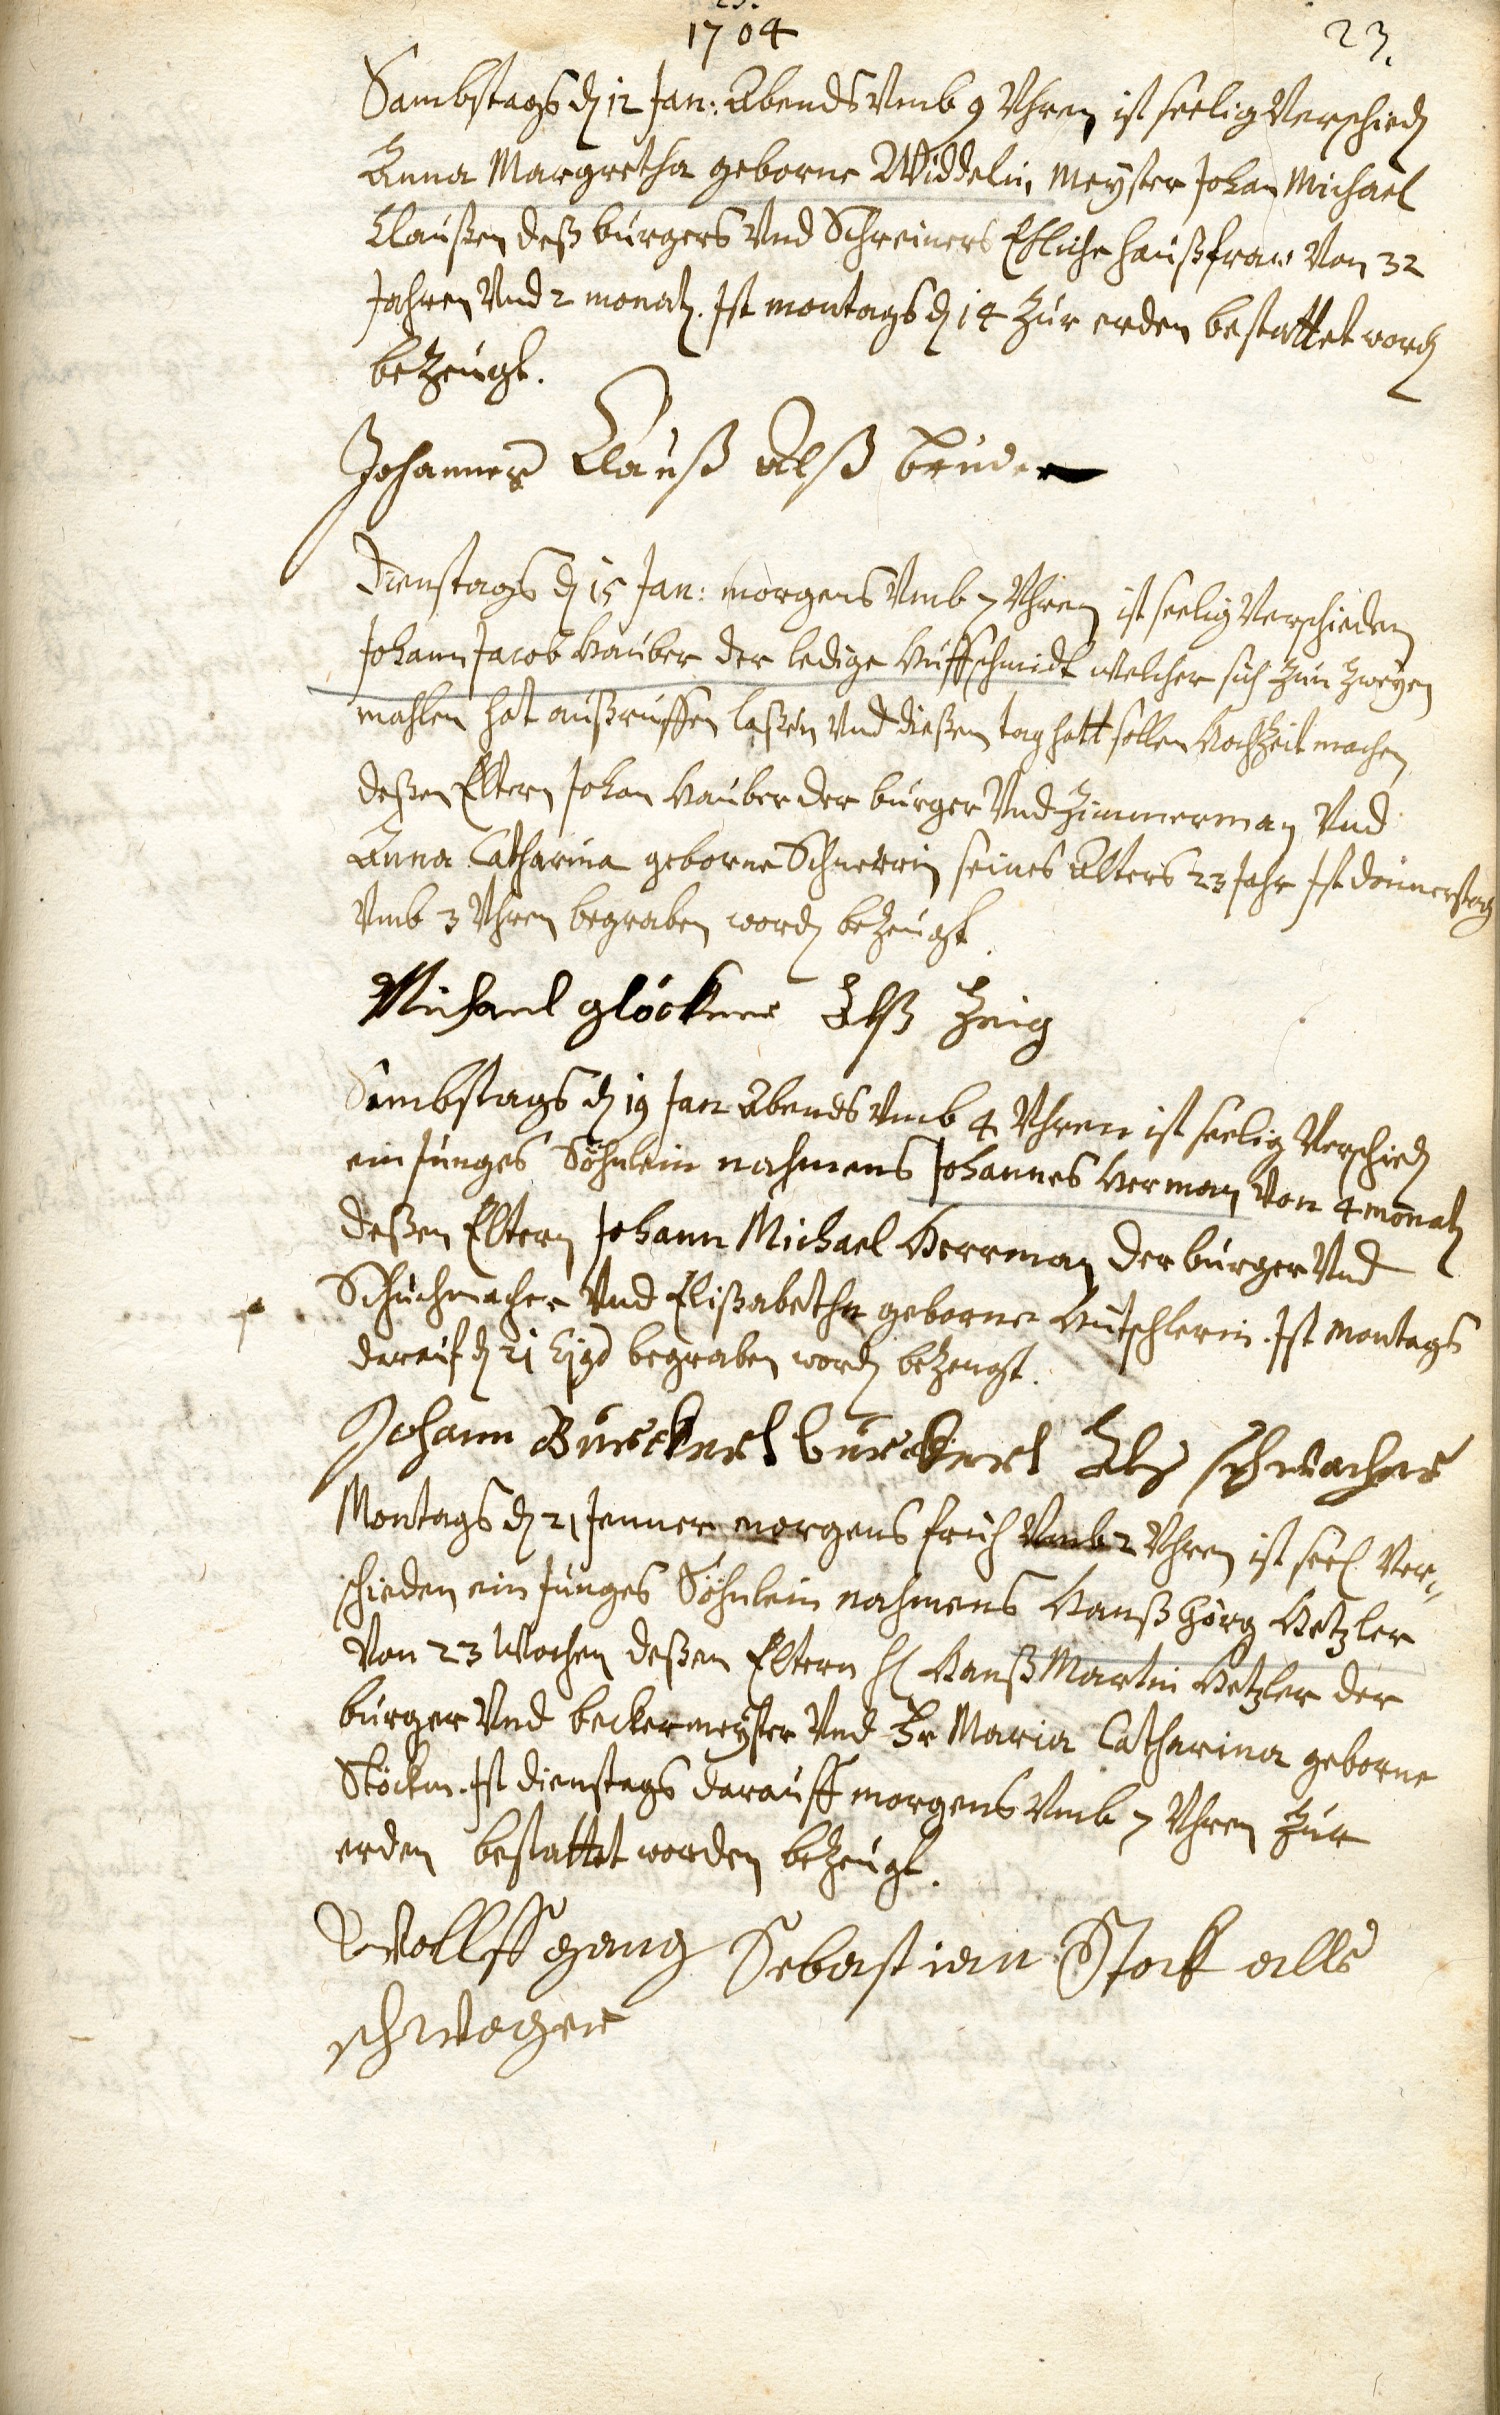 23.
1704
23.
Sambstags dn 12 Jan: Abends Vmb 9 Vhren ist seelig Verschiedn
Anna Margretha geborne Widdelin, Meyster Johan Michael
Claußen deß burgers Vnd Schreiners Ehliche haußfraw Von 32
Jahren Vnd 2 monatn. Ist montags dn 14 Zur erden bestattet wordn
beZeugt.
Johannes Clauß Alß bruder
Dienstags dn 15 Jan: morgens Vmb 7 Vhren ist seelig Verschieden
Johann Jacob Hauber der ledige Huffschmidt welcher sich Zun Zweyen
mahlen hat außruffen laßen Vnd dießen tag hatt sollen HochZeit machen
deßen Eltern Johan Hauber der burger Vnd Zimmerman Vnd
Anna Catharina geborne Schnerrin seines Alters 23 Jahr Ist donnerstag
Vmb 3 Vhren begraben wordn beZeugt.
Michael glöckner Alß Zeig
Sambstags dn 19 Jan Abends Vmb 4 Vhren ist seelig Verschiedn
ein Junges Söhnlein nahmens Johannes Herman Von 4 monatn
deßen Eltern Johann Michael Herrman der burger Vnd
Schuchmacher Vnd Elißabetha geborne Hutschlerin. Ist Montags
darauf dn 21 begraben wordn beZeugt.
Johann Burckert burckert Als
Montags dn 21 Jenner morgens fruh Vmb 2 Vhren ist seel Ver-
schieden ein Junges Söhnlein nahmens Hanß Görg Hetzler
Von 23 Wochen deßen Eltern H Hanß Martin Hetzler der
burger Vnd beckermeyster Vnd Fr Maria Catharina geborne
Stöckin. Ist dienstags darauff morgens Vmb 7 Vhren Zur
erden bestattet worden beZeugt.
Wollffgang Sebastian Stock alls
schwager